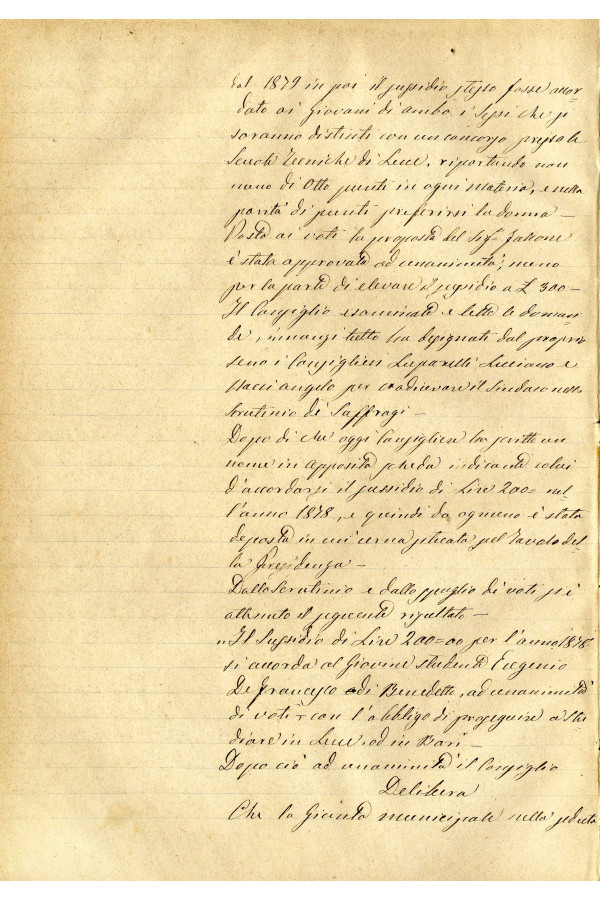 dal 1879 in poi il sussidio stesso fosse accor-
dato ai Giovani di ambo i sessi che si
saranno distinti con un concorso presso le
Scuole Tecniche di Lecce, riportando non
meno di Otto punti in ogni materia, e nella
parità di punti preferirsi la donna –
Posta ai voti la proposta del Sig.
è stata approvata ad unanimità, meno
per la parte di elevare il sussidio a £ 300 –
Il Consiglio esaminate e lette le doman-
de, innanzi tutto ha designati dal proprio
seno i Consiglieri Luparelli Luciano e
Angelo per coadiuvare il Sindaco nello
Scrutinio di Suffragi –
Dopo di che oggi Consigliere ha scritto un
nome in apposita scheda indicante colui
d'accordarsi il sussidio di Lire 200= nel-
l'anno 1878, e quindi da ognuno è stata
deposta in un'urna situata sul tavolo del-
la Presidenza –
Dallo Scrutinio e dallo spoglio di voti si è
ottenuto il seguente risultato –
„Il Sussidio di Lire 200=00 per l'anno 1878
si accorda al Giovine studente Eugenio
De Francesco di Benedetto, ad unanimità
di voti – con l'obbligo di proseguire a stu-
diare in Lecce, od in Bari –
Dopo ciò ad unanimità il Consiglio
Delibera
Che la Giunta municipale nella seduta